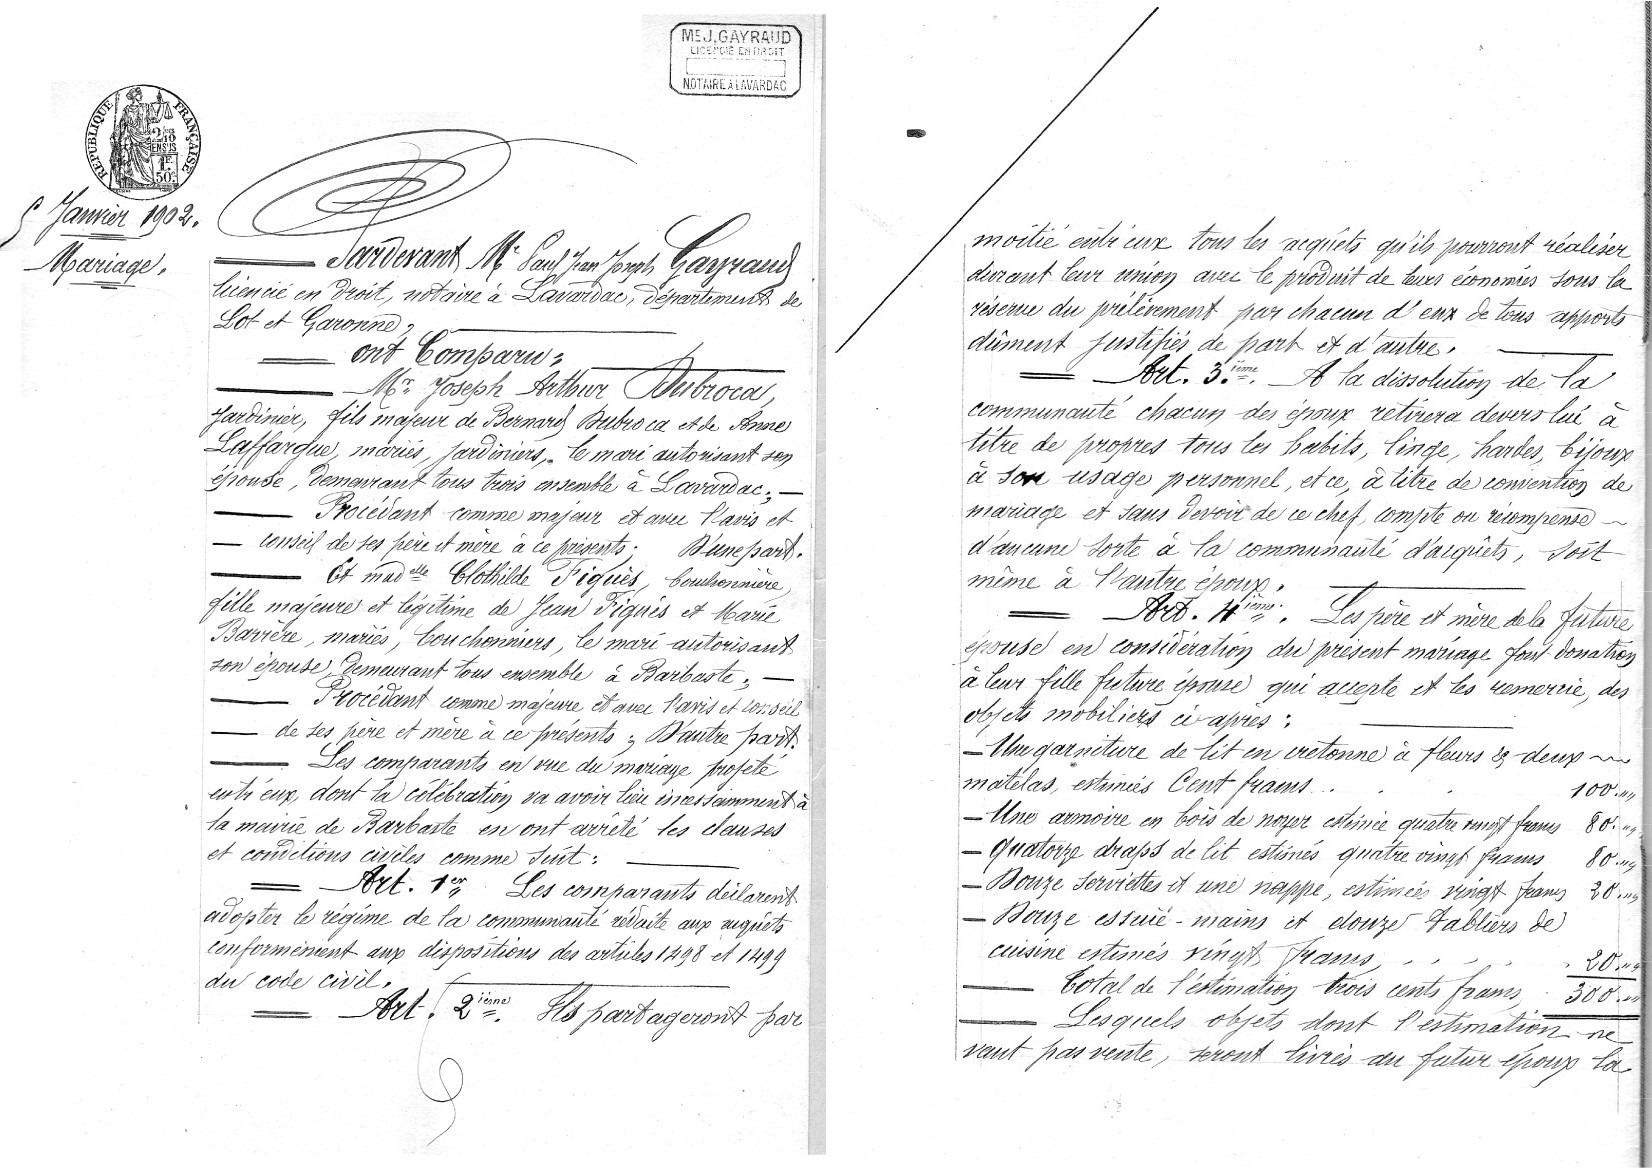 ME J. GAYRAUD
LICENCIÉ EN DROIT
NOTAIRE À LAVARDAC
RÉPUBLIQUE FRANÇAISE
2/10 EN SUS
1F 50c
Janvier 1902.
Mariage.
Pardevant Me Paul Jean Joseph Gayraud
licencié en Droit, notaire à Lavardac, département de
Lot et Garonne,
ont Comparu :
Mr. Joseph Arthur Dubroca,
Jardinier, fils majeur de Bernard Dubroca et de Anne
Laffargue, mariés, jardiniers, le mari autorisant son
épouse, demeurant tous trois ensemble à Lavardac ;
Procédant comme majeur et avec l'avis et
conseil de ses père et mère à ce présents ; D'une part.
Et madelle Clothilde Fiquès, bouchonnière,
fille majeure et légitime de Jean Fiqués et Marie
Barrère, mariés, bouchonniers, le mari autorisant
son épouse, demeurant tous ensemble à Barbaste ;
Procédant comme majeure et avec l'avis et conseil
de ses père et mère à ce présents ; D'autre part.
Les comparants en vue du mariage projeté
entr'eux, dont la célébration va avoir lieu incessamment à
la mairie de Barbaste en ont arrêté les clauses
et conditions civiles comme suit :
Art. 1er. Les comparants déclarent
adopter le régime de la communauté réduite aux acquêts
conformément aux dispositions des articles 1498 et 1499
du code civil.
Art. 2ième. Ils partageront par
moitié entr'eux tous les acquêts qu'ils pourront réaliser
durant leur union avec le produit de leurs économies sous la
réserve du prélèvement par chacun d'eux de tous apports
dûment justifiés de part et d'autre.
Art. 3.ième. A la dissolution de la
communauté chacun des époux retirera devers lui à
titre de propres tous les habits, linge, hardes, bijoux
à son usage personnel, et ce, à titre de convention de
mariage et sans devoir de ce chef, compte ou récompense
d'aucune sorte à la communauté d'acquêts, soit
même à l'autre époux.
Art. 4ième. Les père et mère de la future
épouse en considération du présent mariage font donation
à leur fille future épouse qui accepte et les remercie, des
objets mobiliers ci après :
- Une garniture de lit en cretonne à fleurs & deux
matelas, estimés Cent francs . . . 100. „„
- Une armoire en bois de noyer estimée quatre vingt francs 80. „„
- Quatorze draps de lit estimés quatre vingt francs 80. „„
- Douze serviettes et une nappe, estimées vingt francs 20. „„
- Douze essuie-mains et douze tabliers de
cuisine estimés vingt francs, . . . . 20. „„
Total de l'estimation trois cents francs, 300. „„
Lesquels objets dont l'estimation ne
vaut pas vente, seront livrés au futur époux la